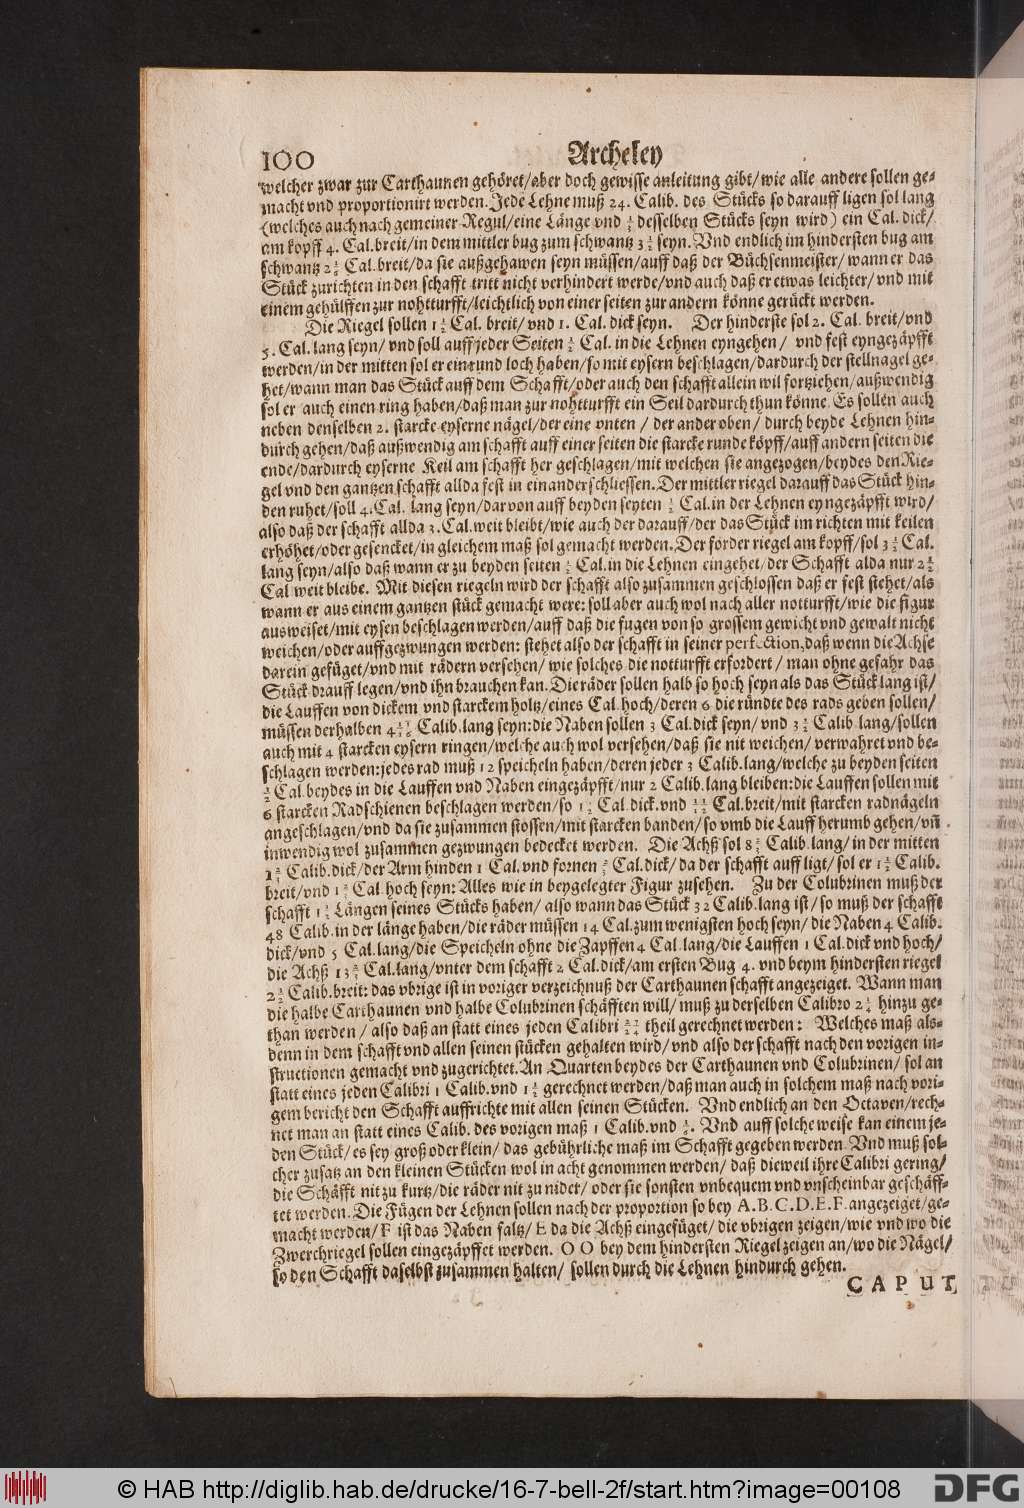 100 Archeley
welcher zwar zur Carthaunen gehöret/aber doch gewisse anleitung gibt/wie alle andere sollen ge-
macht vnd proportionirt werden. Jede Lehne muß 24. Calib. des Stücks so darauff ligen sol lang
(welches auch nach gemeiner Regul/eine Länge vnd desselben Stücks seyn wird) ein Cal. dick/
am kopff 4. Cal. breit/in dem mittler bug zum schwantz 3 ½ seyn. Vnd endlich im hindersten bug am
schwantz 2 ½ Cal. breit/da sie außgehawen seyn müssen/auff daß der Büchsenmeister/ wann er das
Stück zurichten in den schafft tritt nicht verhindert werde/vnd auch daß er etwas leichter/vnd mit
einem gehülffen zur nohtturfft/leichtlich von einer seiten zur andern könne gerückt werden.
Die Riegel sollen 1 ½ Cal. breit/ vnd 1. Cal. dick seyn. Der hinderste sol 2. Cal. breit/vnd
5. Cal. lang seyn/ vnd soll auff jeder Seiten ½ Cal. in die Lehnen eyngehen/ vnd fest eyngezäpfft
werden/in der mitten sol er ein rund loch haben/so mit eysern beschlagen/dardurch der stellnagel ge-
het/wann man das Stück auff dem Schafft/oder auch den schafft allein wil fortziehen/außwendig
sol er auch einen ring haben/daß man zur nohtturfft ein Seil dardurch thun könne. Es sollen auch
neben denselben 2. starcke eyserne nägel/der eine vnten / der ander oben/ durch beyde Lehnen hin-
durch gehen/daß außwendig am schafft auff einer seiten die starcke runde köpff/auff andern seiten die
ende/dardurch eyserne Keil am schafft her geschlagen/mit welchen sie angezogen/beydes den Rie-
gel vnd den gantzen schafft allda fest in einander schliessen. Der mittler riegel darauff das Stück hin-
den ruhet/soll 4. Cal. lang seyn/darvon auff beyden seyten ½ Cal. in der Lehnen eyngezäpfft wird/
also daß der schafft allda 3. Cal. weit bleibt/wie auch der darauff/der das Stück im richten mit keilen
erhöhet/oder gesencket/in gleichem maß sol gemacht werden. Der förder riegel am kopff/sol 3 ½ Cal.
lang seyn/also daß wann er zu beyden seiten ½ Cal. in die Lehnen eingehet/der Schafft alda nur 2 ½
Cal weit bleibe. Mit diesen riegeln wird der schafft also zusammen geschlossen daß er fest stehet/als
wann er aus einem gantzen stück gemacht were: soll aber auch wol nach aller notturfft/wie die figur
ausweiset/mit eysen beschlagen werden/auff daß die fugen von so grossem gewicht vnd gewalt nicht
weichen/oder auffgezwungen werden: stehet also der schafft in seiner perfection, daß wenn die Achse
darein gefüget/vnd mit rädern versehen/ wie solches die notturfft erfordert / man ohne gefahr das
Stück drauff legen/vnd ihn brauchen kan. Die räder sollen halb so hoch seyn als das Stück lang ist/
die Lauffen von dickem vnd starckem holtz/eines Cal. hoch/deren 6 die ründte des rads geben sollen/
müssen derhalben 4 Calib. lang seyn: die Naben sollen 3 Cal. dick seyn/ vnd 3 ½ Calib lang/sollen
auch mit 4 starcken eysern ringen/welche auch wol versehen/daß sie nit weichen/ verwahret vnd be-
schlagen werden: jedes rad muß 12 speicheln haben/deren jeder 3 Calib. lang/welche zu beyden seiten
½ Cal. beydes in die Lauffen vnd Naben eingezäpfft/nur 2 Calib. lang bleiben: die Lauffen sollen mit
6 starcken Radschienen beschlagen werden/so 1 Cal. dick. vnd Cal. breit/mit starcken radnägeln
angeschlagen/vnd da sie zusammen stossen/mit starcken banden/so vmb die Lauff herumb gehen/vñ
inwendig wol zusammen gezwungen bedecket werden. Die Achß sol 8 Calib. lang/ in der mitten
1 Calib. dick/der Arm hinden 1 Cal. vnd fornen Cal. dick/ da der schafft auff ligt/ sol er 1 Calib.
breit/vnd 1 Cal hoch seyn: Alles wie in beygelegter Figur zusehen. Zu der Colubrinen muß der
schafft 1 ½ Längen seines Stücks haben/ also wann das Stück 32 Calib. lang ist/ so muß der schafft
48 Calib. in der länge haben/die räder müssen 14 Cal. zum wenigsten hoch seyn/ die Naben 4 Calib.
dick/vnd 5 Cal. lang/die Speicheln ohne die Zapffen 4 Cal. lang/die Lauffen 1 Cal. dick vnd hoch/
die Achß 13 Cal. lang/vnter dem schafft 2 Cal. dick/am ersten Bug 4. vnd beym hindersten riegel
2 ½ Calib. breit: das vbrige ist in voriger verzeichnuß der Carthaunen schafft angezeiget. Wann man
die halbe Carthaunen vnd halbe Colubrinen schäfften will/ muß zu derselben Calibro hinzu ge-
than werden / also daß an statt eines jeden Calibri theil gerechnet werden: Welches maß als-
denn in dem schafft vnd allen seinen stücken gehalten wird/ vnd also der schafft nach den vorigen in-
structionen gemacht vnd zugerichtet. An Quarten beydes der Carthaunen vnd Colubrinen/ sol an
statt eines jeden Calibri 1 Calib. vnd gerechnet werden/daß man auch in solchem maß nach vori-
gem bericht den Schafft auffrichte mit allen seinen Stücken. Vnd endlich an den Octaven/rech-
net man an statt eines Calib. des vorigen maß 1 Calib. vnd Vnd auff solche weise kan einem je-
den Stück/ es sey groß oder klein/ das gebührliche maß im Schafft gegeben werden. Vnd muß sol-
cher zusatz an den kleinen Stücken wol in acht genommen werden/ daß dieweil ihre Calibri gering/
die Schäfft nit zu kurtz/die räder nit zu nider/ oder sie sonsten vnbequem vnd vnscheinbar geschäff-
tet werden. Die Fügen der Lehnen sollen nach der proportion so bey A. B. C. D. E. F. angezeiget/ge-
macht werden/ F ist das Naben faltz/ E da die Achß eingefüget/ die vbrigen zeigen/wie vnd wo die
Zwerchriegel sollen eingezäpffet werden. O O bey dem hindersten Riegel zeigen an/wo die Nägel/
so den Schafft daselbst zusammen halten/ sollen durch die Lehnen hindurch gehen.
CAPUT
© HAB http://diglib.hab.de/drucke/16-7-bell-2f/start.htm?image=00108
DFG